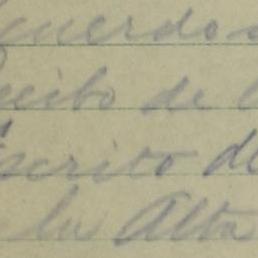 cuerdo
ecibo de
scrito de
la Alta